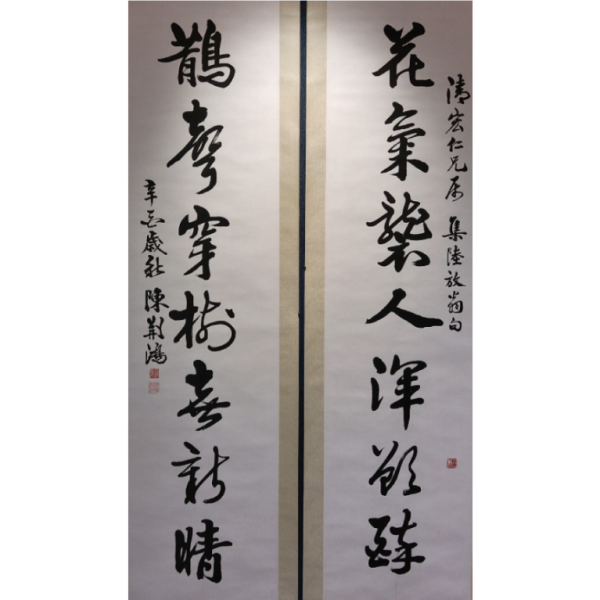 宏仁兄属 集陸放翁句
花氣襲人渾欲醉
鵲聲穿樹喜新晴
辛酉歲秋 陳荊鴻